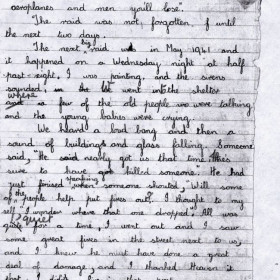 aeroplanes and men you'll lose.
The raid was not forgotten, until
the next two days.
The next big raid was in May 1941 and
it happened on a Wednesday night at half
past eight, I was painting, and the sirens
sounded, in the went into the shelter
where
and a few of the old people we were talking
and the young babies were crying.
We heard a loud bang and then a
sound of buildings and glass falling. Someone
said, "He said nearly got us that time. He's
sure to have got killed someone." He had
speaking
just finised when someone shouted, Will some
of the people help put fires out". I thought to my
self I wonder where that one dropped. All was
quiet
for a time, I went out and I saw
some great fires in the street next to us,
and I knew he must have done a great
deal of damage and I thanked Heaven
that I